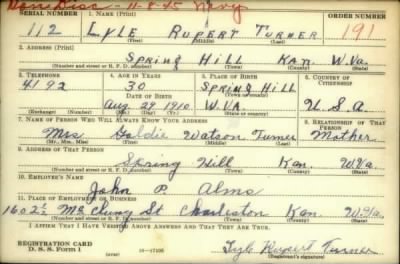 Hon Disc - 11-8-45 Navy
SERIAL NUMBER 1. NAME (Print) ORDER NUMBER
112 LYLE RUPERT TURNER 191
(First) (Middle) (Last)
2. ADDRESS (Print)
SPRING HILL KAN. W.VA.
(Number and street or R. F. D. number) (Town) (County) (State)
3. TELEPHONE 4. AGE IN YEARS 5. PLACE OF BIRTH 6. COUNTRY OF CITIZENSHIP
4192 30 SPRING HILL
DATE OF BIRTH (Town or county)
Aug 29 1910 W.VA U.S.A
(Exchange) (Number) (Mo.) (Day) (Yr.) (State or country)
7. NAME OF PERSON WHO WILL ALWAYS KNOW YOUR ADDRESS 8. RELATIONSHIP OF THAT PERSON
Mrs Goldie Watson Turner Mother
(Mr., Mrs., Miss) (First) (Middle) (Last)
9. ADDRESS OF THAT PERSON
Spring Hill Kan. W.Va
(Number and street or R. F. D. number) (Town) (County) (State)
10. EMPLOYER'S NAME
John P. Alms
11. PLACE OF EMPLOYMENT OR BUSINESS
1602½ McClung St Charleston Kan. W.Va.
(Number and street or R. F. D. number) (Town) (County) (State)
I AFFIRM THAT I HAVE VERIFIED ABOVE ANSWERS AND THAT THEY ARE TRUE.
REGISTRATION CARD
D. S. S. FORM 1 (over) Lyle Rupert Turner
(Registrant's signature)